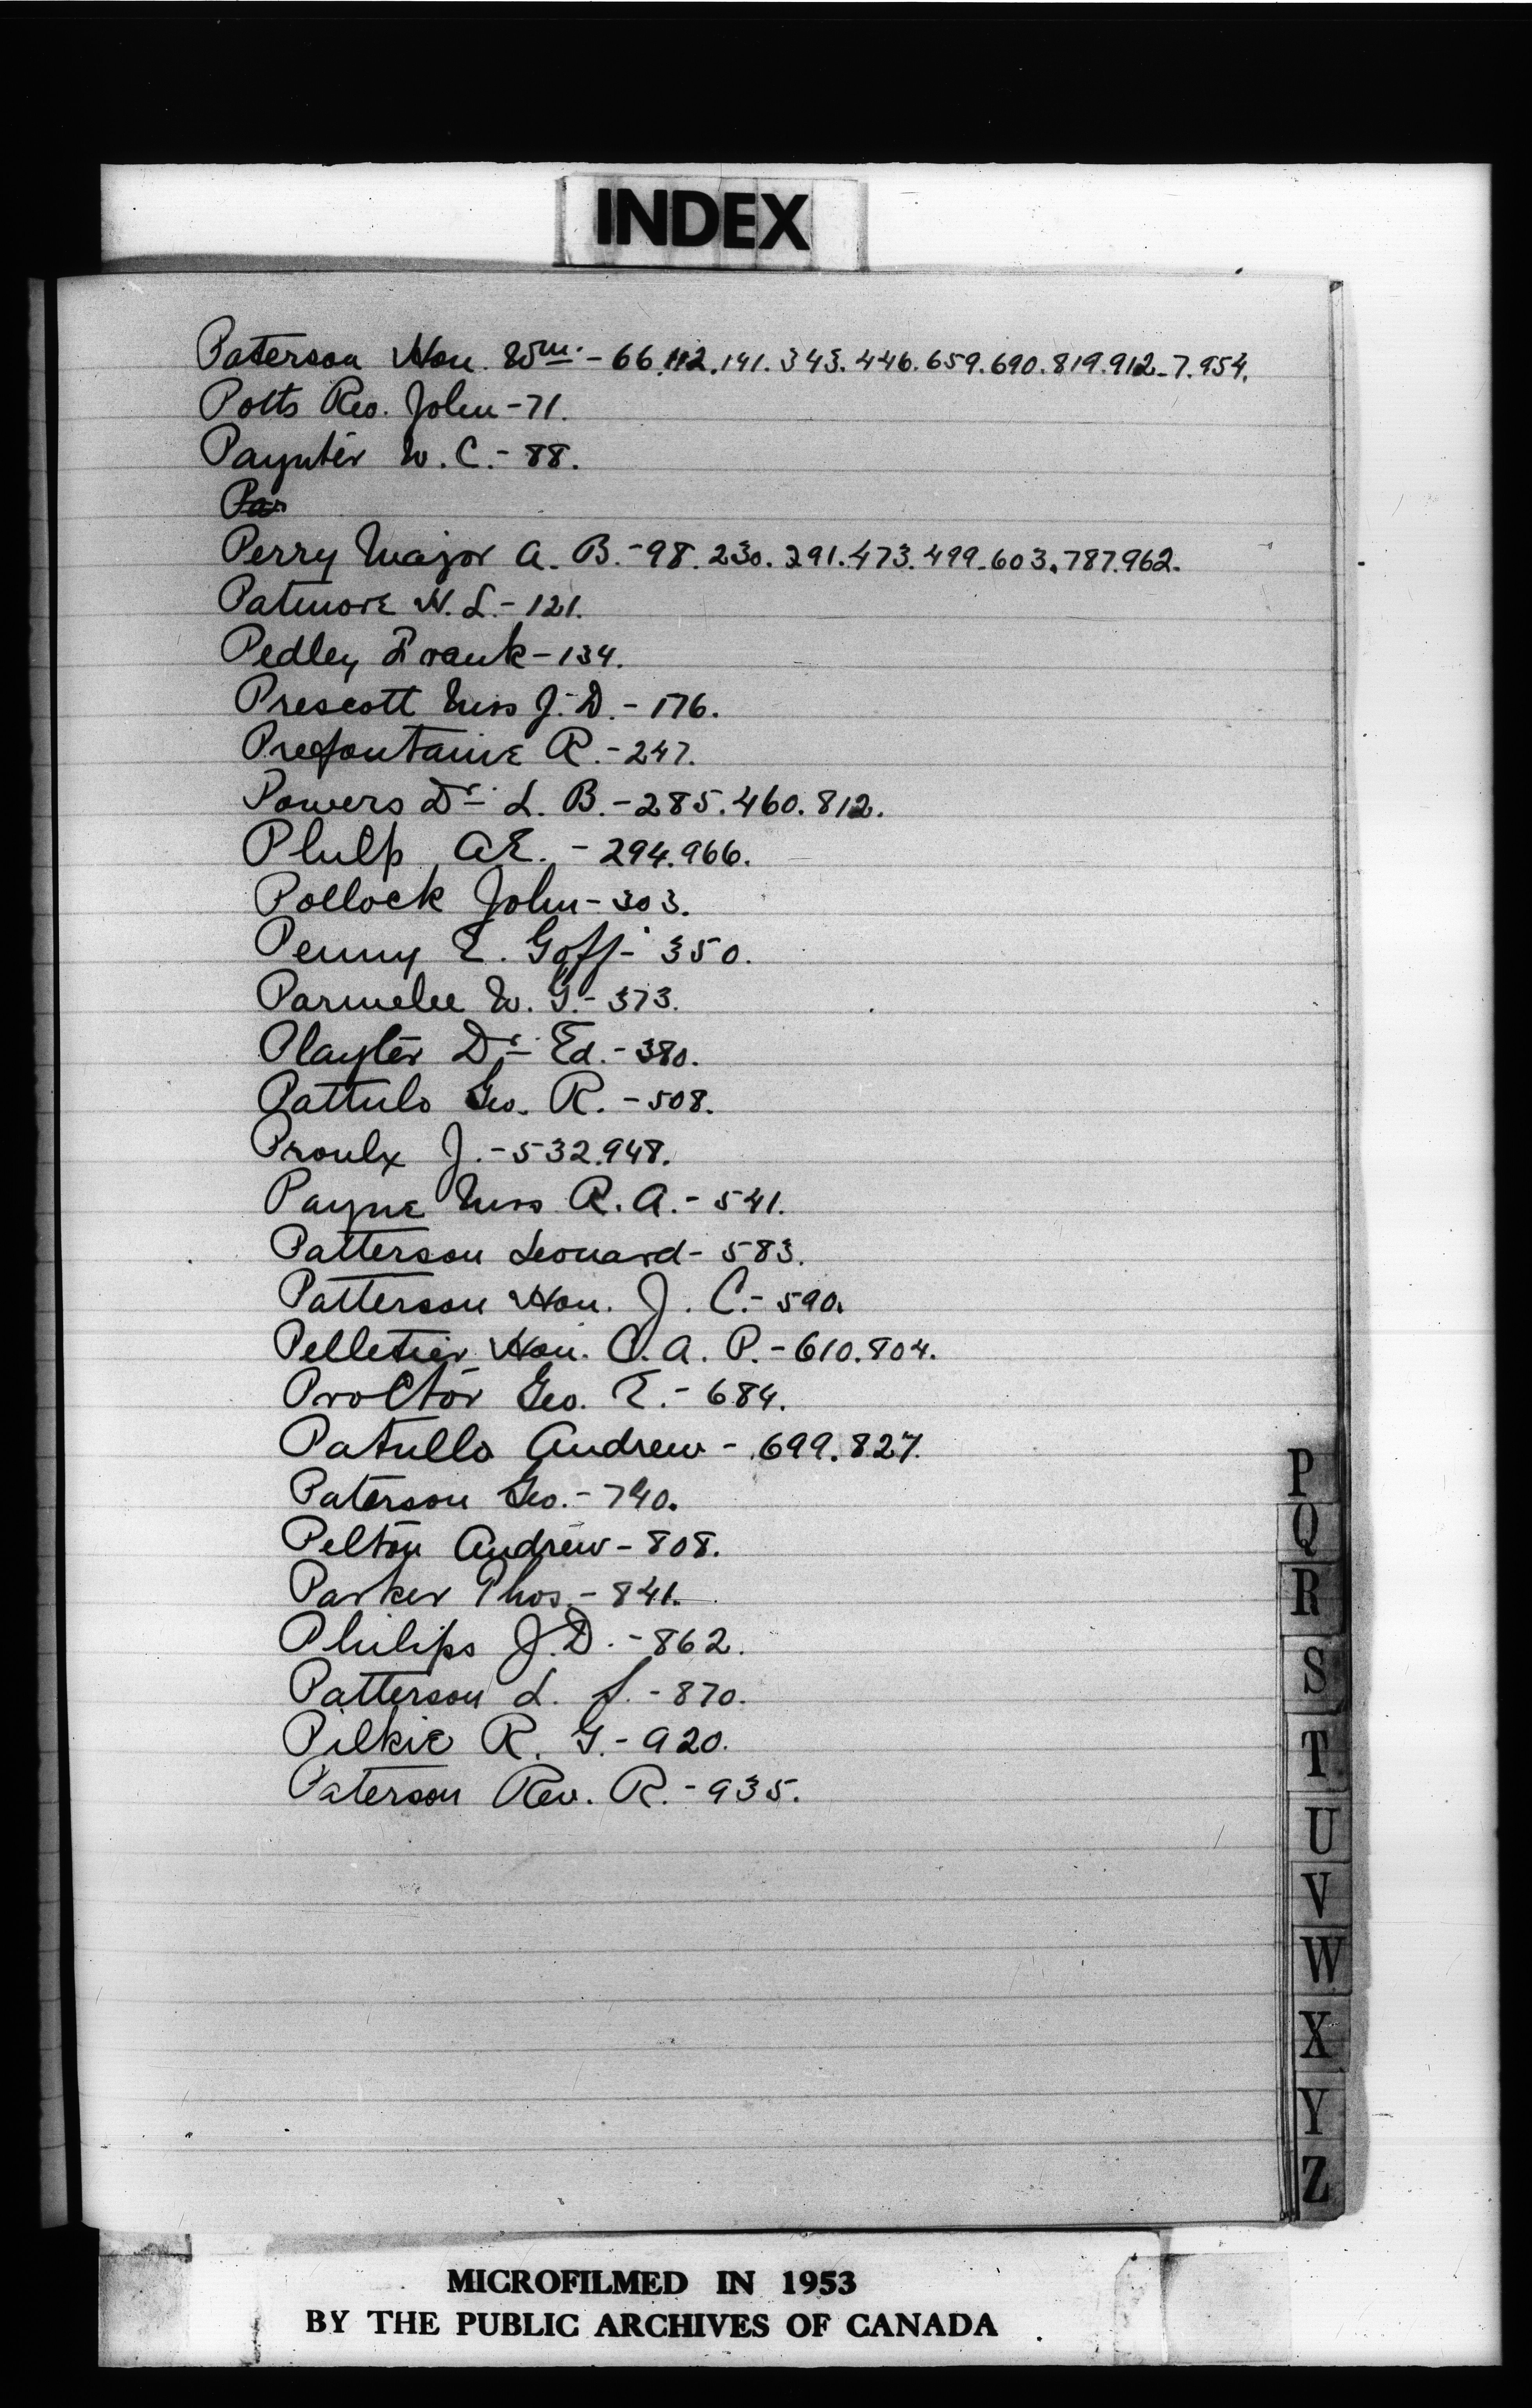 INDEX
Paterson Hon. Wm. - 66.112.141.343.446.659.690.819.912-7.954.
Potts Rev. John - 71.
Paynter W. C. - 88.
Par
Perry Major A. B. - 98.230.291.473.499.603.787.962.
Patmore H. L. - 121.
Pedley Frank - 134.
Prescott Miss J. D. - 176.
Prefontaine R. - 247.
Powers Dr. L. B. - 285.460.812.
Philp A.E. - 294.966.
Pollock John - 303.
Penny E. Goff - 350.
Parmelee W. G. - 373.
Playter Dr. Ed. - 380.
Pattulo Geo. R. - 508.
Proulx J. - 532.948.
Payne Miss R. A. - 541.
Patterson Leonard - 583.
Patterson Hon. J. C. - 590.
Pelletier Hon. C. A. P. - 610.804.
Proctor Geo. E. - 684.
Patullo Andrew - 699.827.
Paterson Geo. - 740.
Pelton Andrew - 808.
Parker Thos. - 841.
Philips J. D. - 862.
Patterson L. S. - 870.
Pilkie R. G. - 920.
Paterson Rev. R. - 935.
P
Q
R
S
T
U
V
W
X
Y
Z
MICROFILMED IN 1953
BY THE PUBLIC ARCHIVES OF CANADA